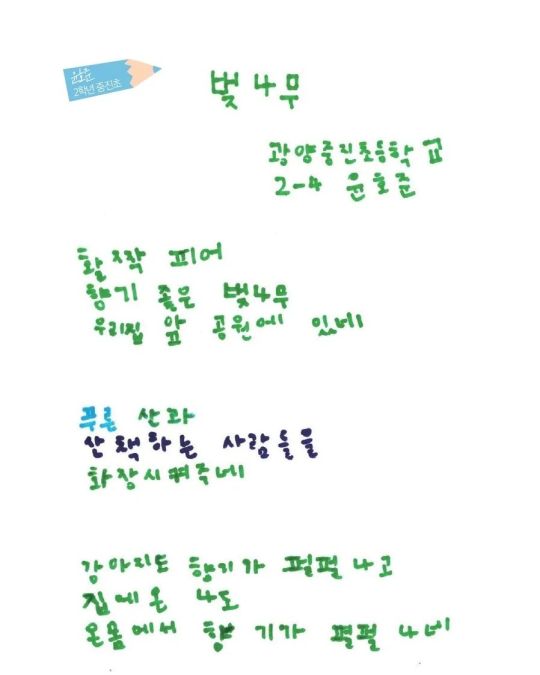 윤호준
2학년 중진초
벚나무
광양중진초등학교
2-4 윤호준
활짝 피어
향기 좋은 벚나무
우리집 앞 공원에 있네
푸른 산과
산책하는 사람들을
화장시켜주네
강아지도 향기가 펄펄 나고
집에 온 나도
온몸에서 향기가 펄펄 나네